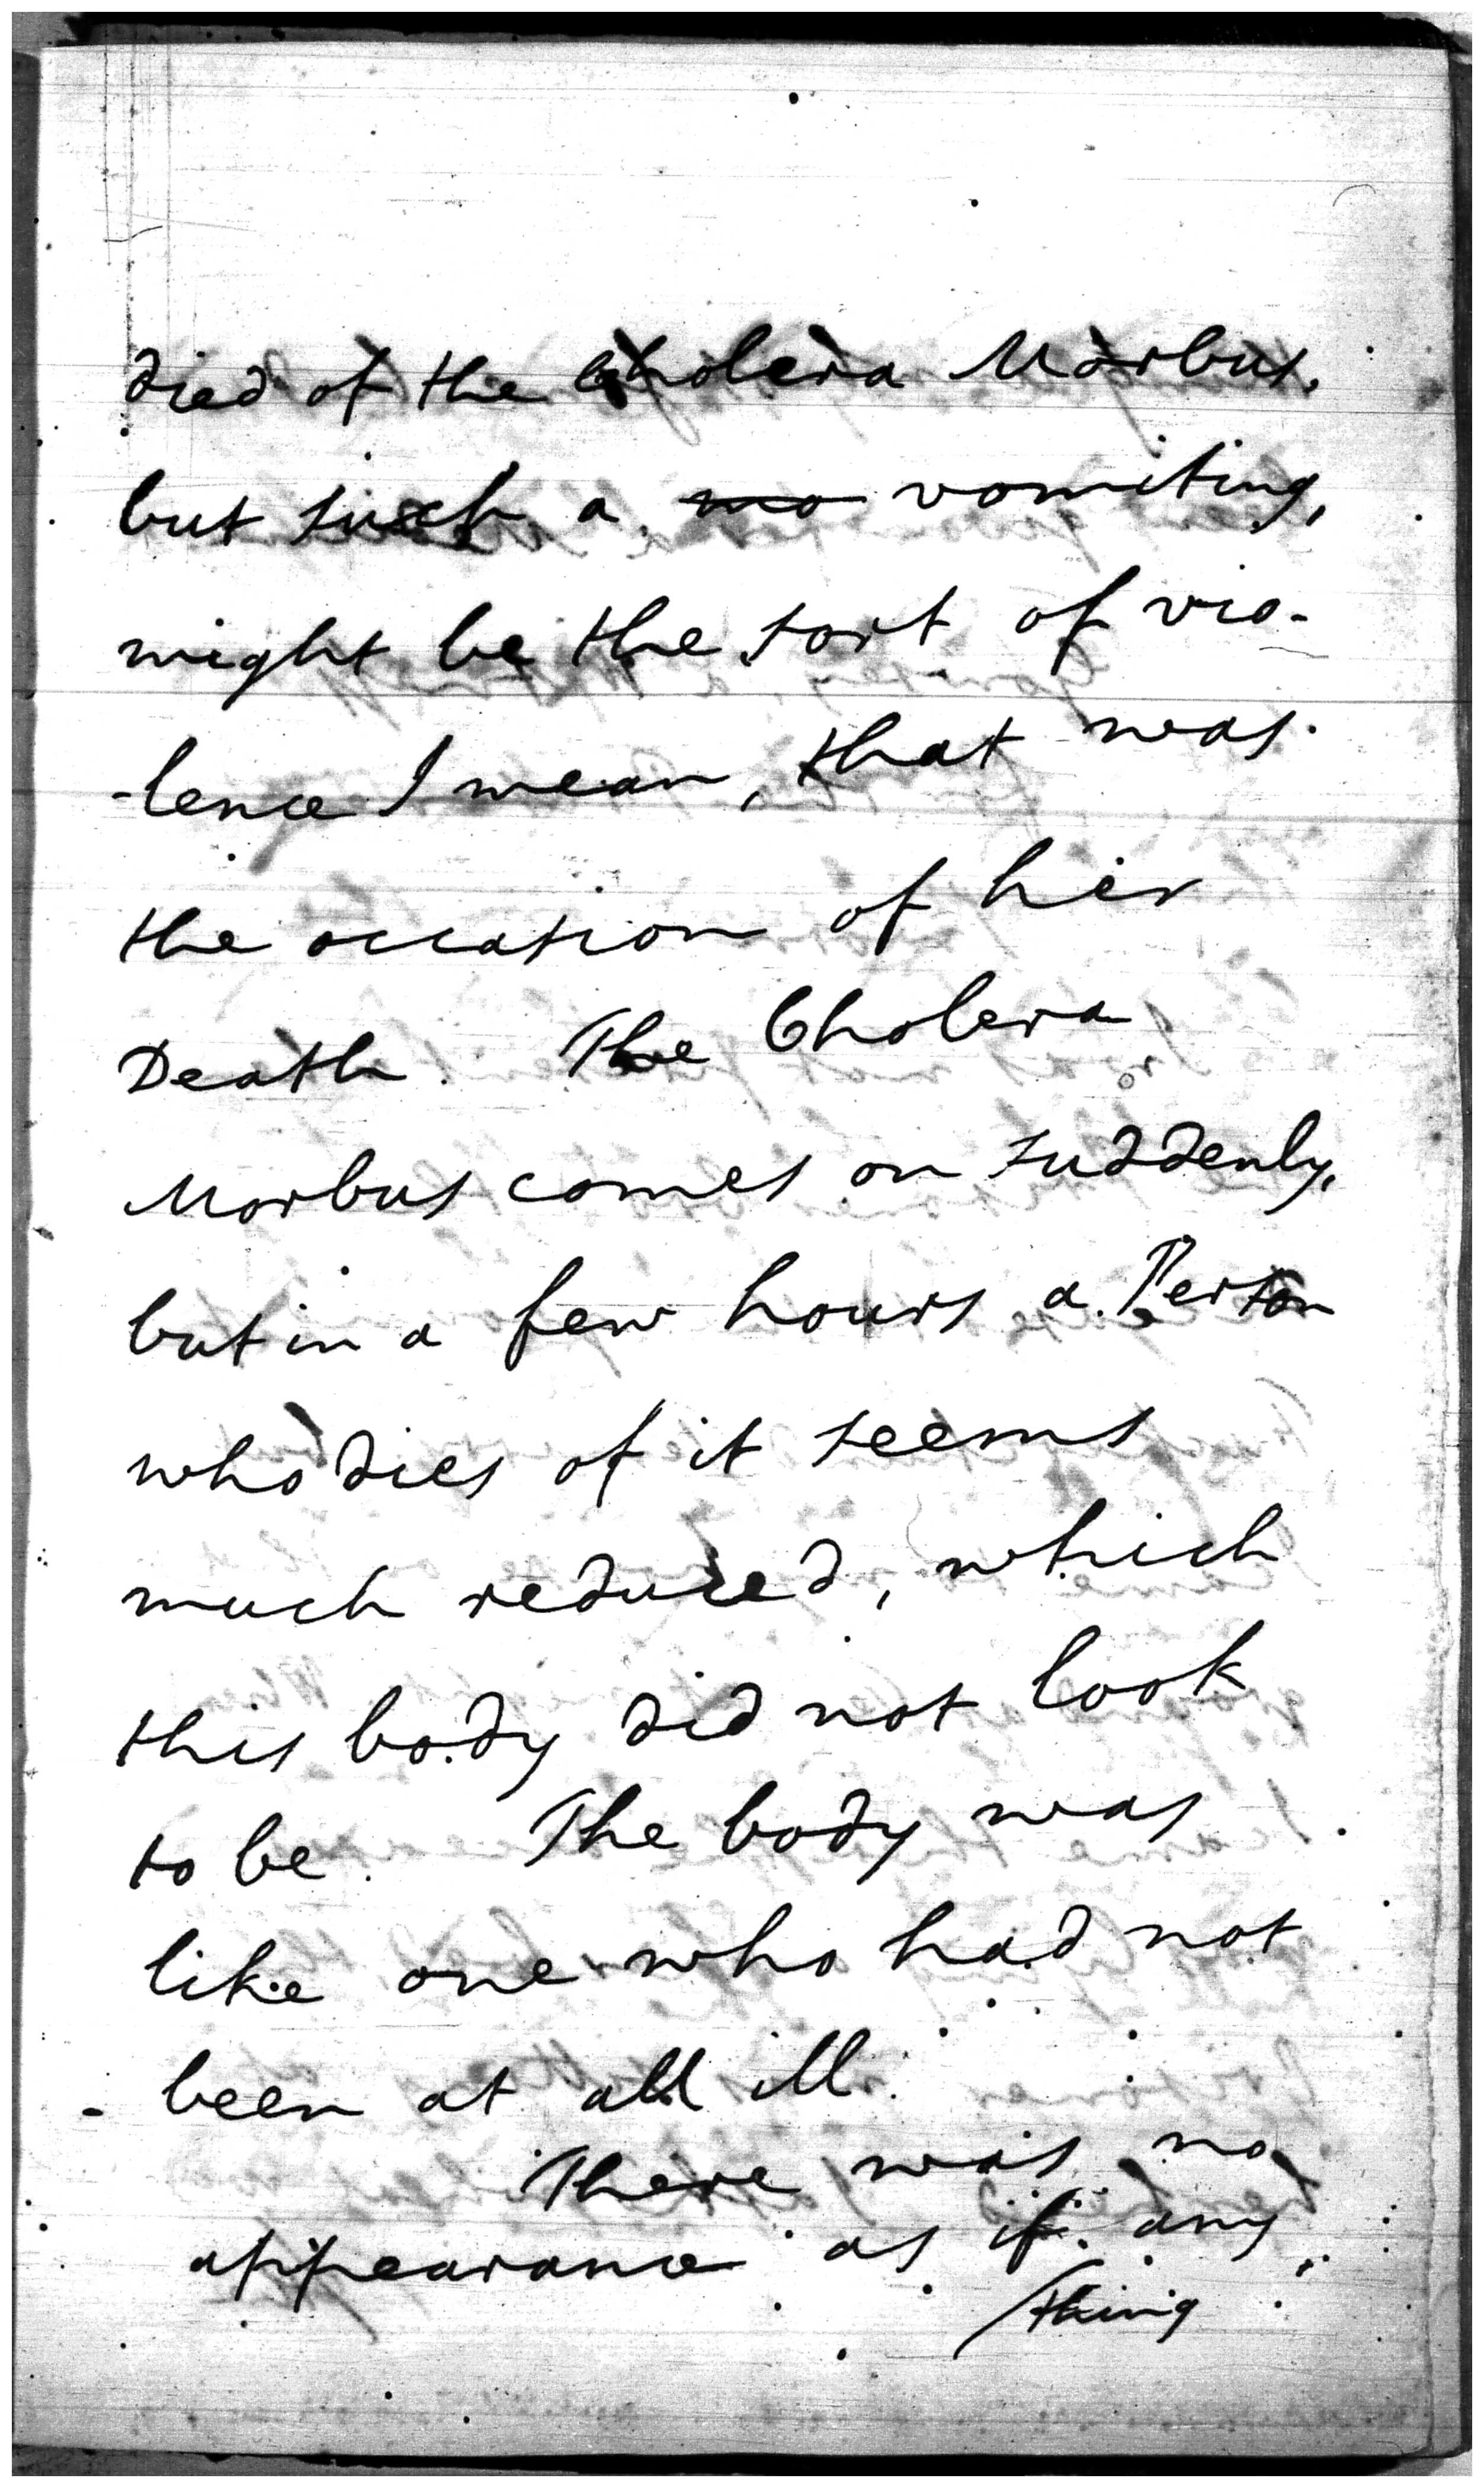 died of the Cholera Morbus.
but such a mo vomiting,
might be the sort of vio-
-lence I mean, that was
the occasion of her
Death. The Cholera
Morbus comes on suddenly,
but in a few hours a Person
who dies of it seems
much reduced, which
this body did not look
to be. The body was
like one who had not
been at all ill.
There was no
appearance as if any
thing